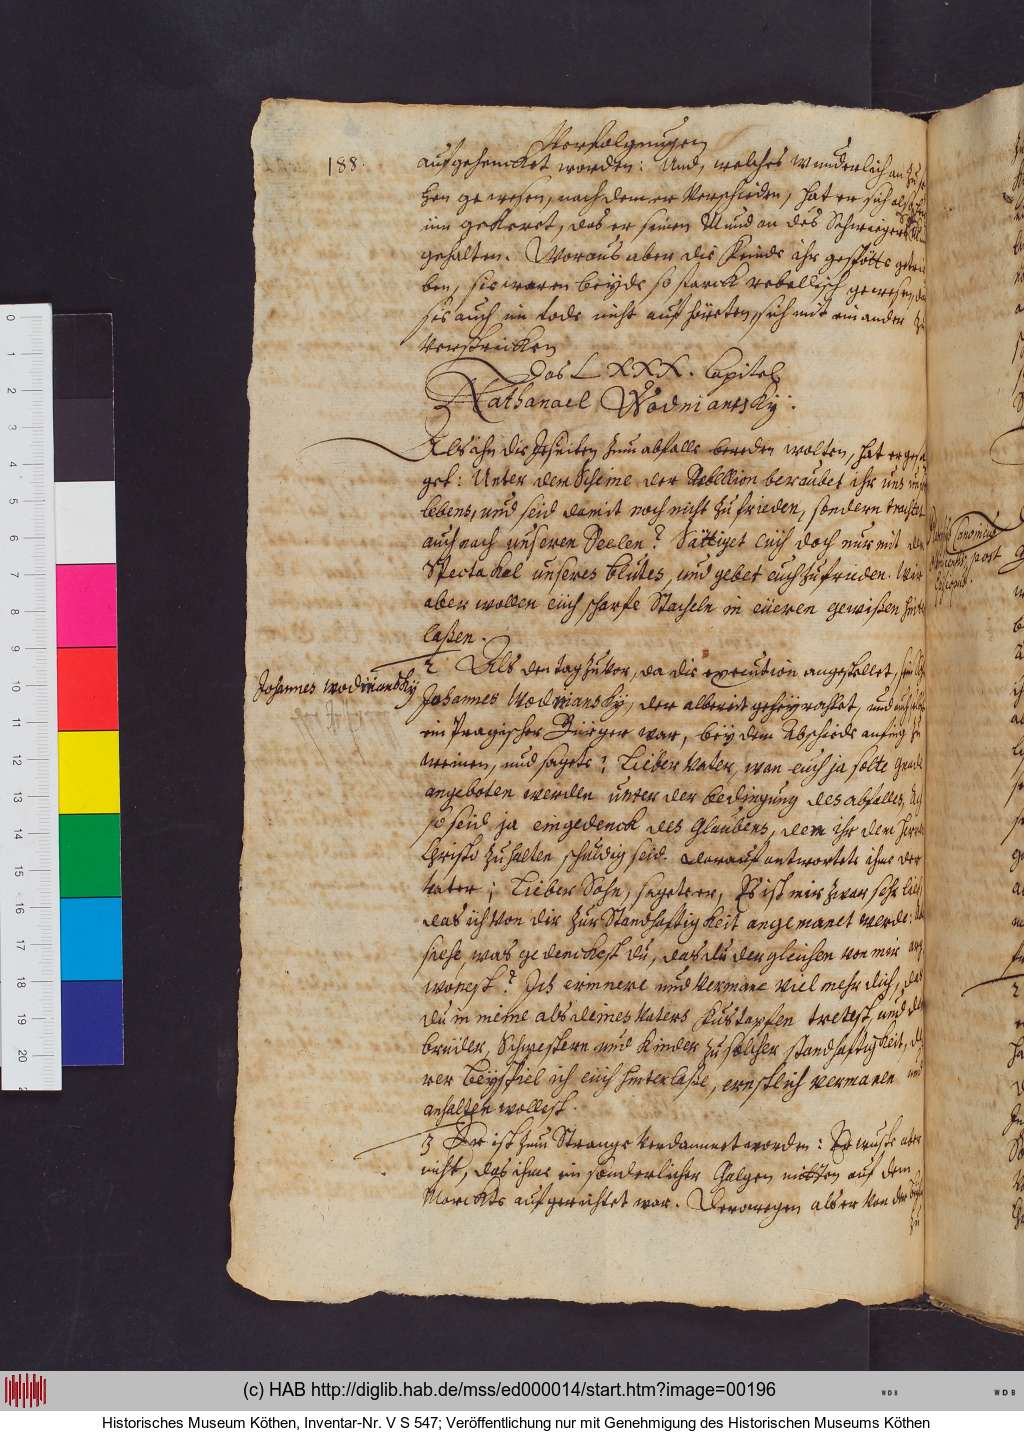 Verfolgungen
188.
aufgehencket worden: Und, welches wunderlich an zu se
hen gewesen, nach dem er Verschieden, hat er sich also her
üm gekeret, das er seinen Mund an des Schwiegers
gehalten. Woraus aber die Feinde ihr gespötte getrie
ben, sie weren beyde so starck rebellisch gewesen, das
sie auch im tode nicht auf höreten, sich mit einander zu
verstricken
Das LXXX. Capitel
Nathanael Wodniansky.
Als ihn die Jesuiten zum abfalle bereden wolten, hat er gesa
get: Unter dem Scheine der Rebellion beraubet ihr uns unsers
lebens, und seid damit noch nicht zu frieden, sondern trachtet
auch nach unseren Seelen? Sättiget euch doch nur mit dem
Spectakel unseres blutes, und gebet euch zufrieden. Wir
aber wollen euch scharfe Stacheln in eüeren gewißen hinter
laßen.
2. Als den tag zuvor, da die execution angestellet, sein Sohn
Johannes wodniansky
Johannes Wodniansky, der albereit geheyrathet, und auch
ein Pragischer Bürger war, bey dem Abschiede anfing zu
weinen, und sagete: Lieber Vater, wan euch ja solte gnade
angeboten werden unter der bedingung des abfalles,
so seid ja eingedenck des Glaubens, dem ihr dem herrn
Christo zuhalten schuldig seid. darauf antwortete ihme der
Vater: Lieber Sohn, sagete er, Es ist mir zwar sehr lieb,
das ich von dir zur Standhaftigkeit angemanet werde:
siehe, was gedenckest du, das du dergleichen von mir arg
wonest? Ich erinnere und vermane viel mehr dich, das
du in meine als deines Vaters Fustapfen tretest, und deine
brüder, Schwestern und Kinder zu solcher standhaftigkeit, de
rer beyspiel ich euch hinterlaße, ernstlich vermanen und
anhalten wollest.
3 Er ist zum Strange verdammet worden: Er wuste aber
nicht, das ihme ein sonderlicher Galgen mitten auf dem
Marckte aufgerichtet war. Derowegen als er von der
zu
Canonicus
post
0 1 2 3 4 5 6 7 8 9 10 11 12 13 14 15 16 17 18 19 20
(c) HAB http://diglib.hab.de/mss/ed000014/start.htm?image=00196
WDB
WDB
Historisches Museum Köthen, Inventar-Nr. V S 547; Veröffentlichung nur mit Genehmigung des Historischen Museums Köthen